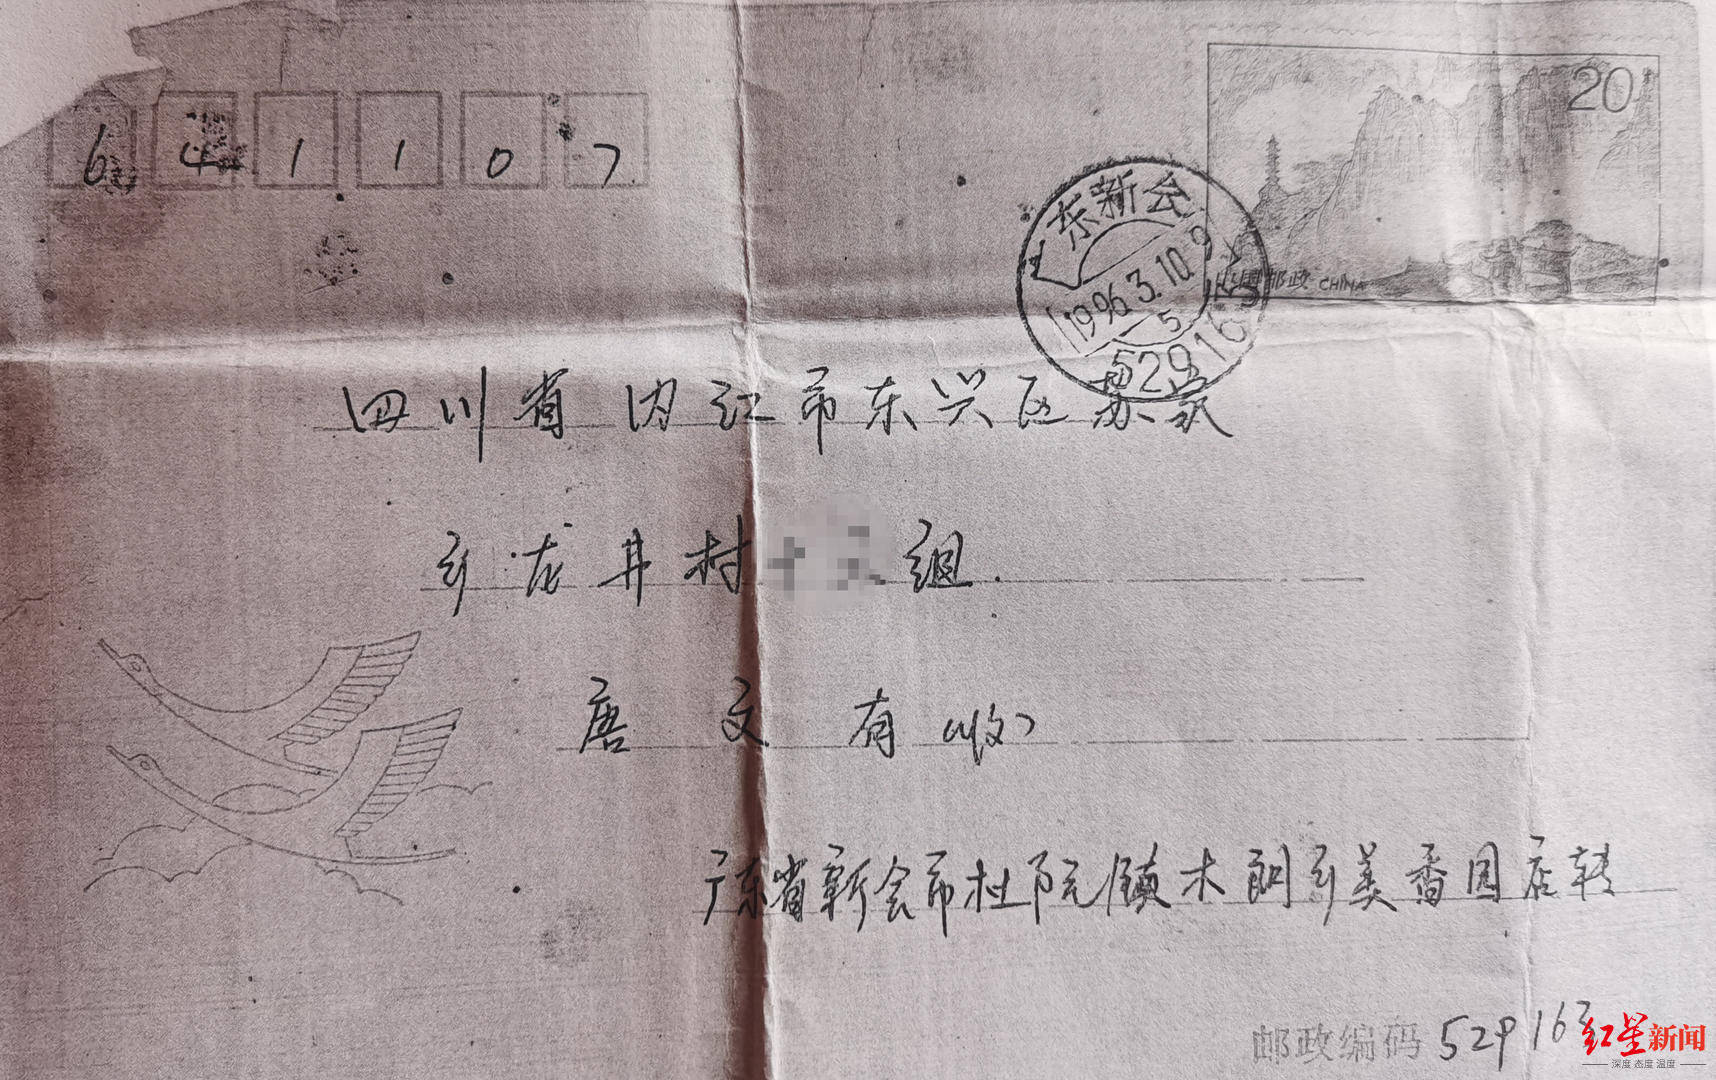 641107
20
中国邮政 CHINA
广东新会
1996.3.10.9
5
529163
四川省内江市东兴区苏家
乡龙井村组.
唐文有(收)
广东省新会市杜阮镇木朗乡美香园店转
邮政编码 529163
红星新闻
深度 态度 温度